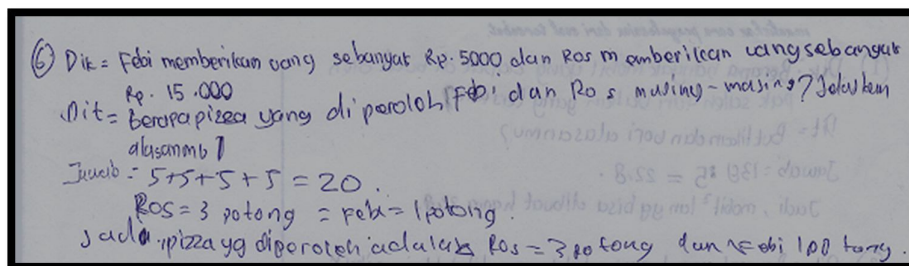 6 Dik = Febi memberikan uang sebanyak Rp. 5000 dan Ros memberikan uang sebanyak
Rp. 15.000
Dit = Berapa pizza yang diperoloh Febi dan Ros masing-masing? Jelaskan
alasanmu
Jawab = 5+5+5+5 = 20.
Ros = 3 potong = Febi = 1 potong.
Jadi pizza yg diperoleh adalah Ros = 3 potong dan Febi 1 potong.